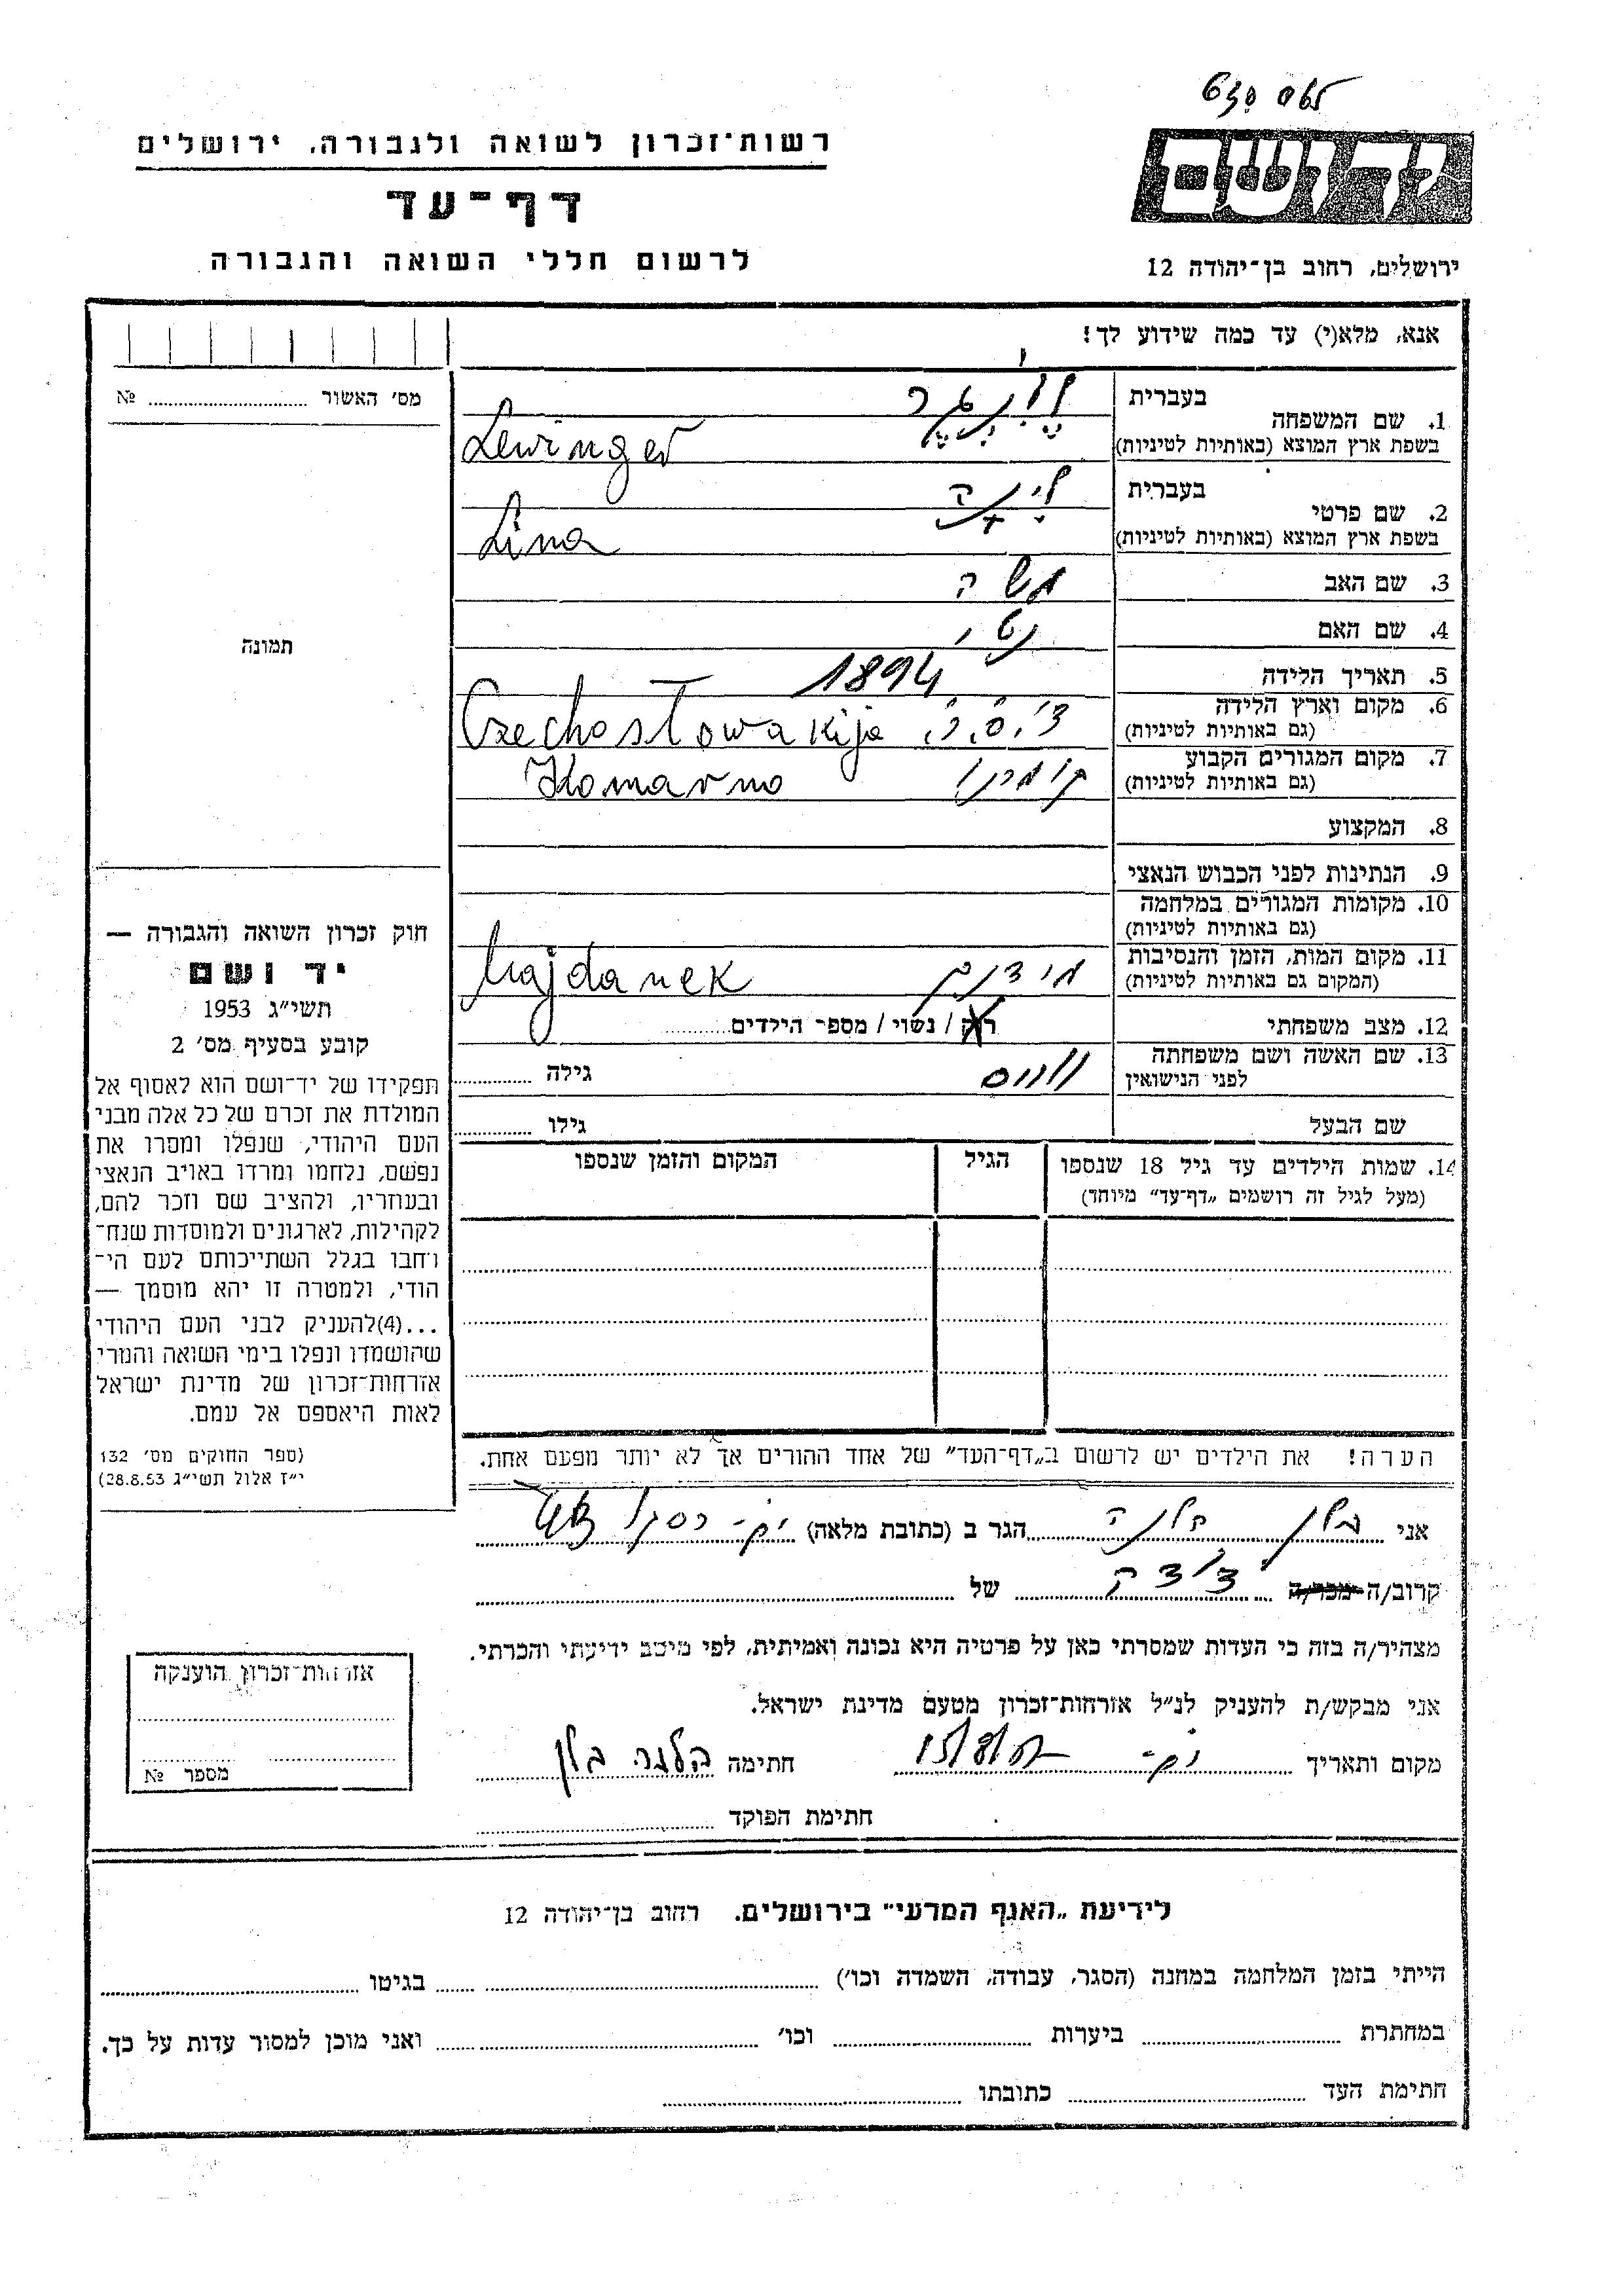 רשות־זכרון לשואה ולגבורה, ירושלים
דף־עד
לרשום חללי השואה והגבורה
יד ושם
ירושלים, רחוב בן־יהודה 12
אנא, מלא(י) עד כמה שידוע לך!
מס׳ האשור ........ №
תמונה
1. שם המשפחה
בעברית לוינגר
בשפת ארץ המוצא (באותיות לטיניות) Lewinger
2. שם פרטי
בעברית לינה
בשפת ארץ המוצא (באותיות לטיניות) Lina
3. שם האב משה
4. שם האם נטי
5. תאריך הלידה 1894
6. מקום וארץ הלידה
(גם באותיות לטיניות) Czechosłowakija
7. מקום המגורים הקבוע קומרנו
(גם באותיות לטיניות) Komarno
8. המקצוע
9. הנתינות לפני הכבוש הנאצי
10. מקומות המגורים במלחמה
(גם באותיות לטיניות)
11. מקום המות, הזמן והנסיבות
(המקום גם באותיות לטיניות) Majdanek
12. מצב משפחתי רוק / נשוי / מספר הילדים
13. שם האשה ושם משפחתה
לפני הנישואין
גילה
שם הבעל גילו
14. שמות הילדים עד גיל 18 שנספו
(מעל לגיל זה רושמים „דף־עד” מיוחד)
הגיל
המקום והזמן שנספו
חוק זכרון השואה והגבורה —
יד ושם
תשי״ג 1953
קובע בסעיף מס׳ 2
תפקידו של יד־ושם הוא לאסוף אל
המולדת את זכרם של כל אלה מבני
העם היהודי, שנפלו ומסרו את
נפשם, נלחמו ומרדו באויב הנאצי
ובעוזריו, ולהציב שם וזכר להם,
לקהילות, לארגונים ולמוסדות שנח־
רחבו בגלל השתייכותם לעם הי־
הודי, ולמטרה זו יהא מוסמך —
...(4)להעניק לבני העם היהודי
שהושמדו ונפלו בימי השואה והמרי
אזרחות־זכרון של מדינת ישראל
לאות היאספם אל עמם.
(ספר החוקים מס׳ 132
י״ז אלול תשי״ג 28.8.53)
הערה! את הילדים יש לרשום ב„דף־העד” של אחד ההורים אך לא יותר מפעם אחת.
אני הגר ב (כתובת מלאה)
קרוב/ה מכר/ה של
מצהיר/ה בזה כי העדות שמסרתי כאן על פרטיה היא נכונה ואמיתית, לפי מיטב ידיעתי והכרתי.
אני מבקש/ת להעניק לנ״ל אזרחות־זכרון מטעם מדינת ישראל.
מקום ותאריך חתימה
חתימת הפוקד
אזרחות־זכרון הוענקה
מספר №
לידיעת „האגף המדעי” בירושלים. רחוב בן־יהודה 12
הייתי בזמן המלחמה במחנה (הסגר, עבודה, השמדה וכו׳) בגיטו
במחתרת ביערות וכו׳ ואני מוכן למסור עדות על כך.
חתימת העד כתובתו